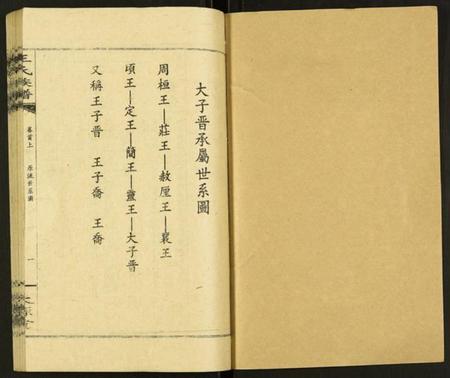 大子晉承屬世系圖
周桓王—莊王—敖厘王—襄王
頃王—定王—簡王—靈王—大子晉
又稱王子晉 王子喬 王喬
王氏族譜
卷首上
源流世系圖
一